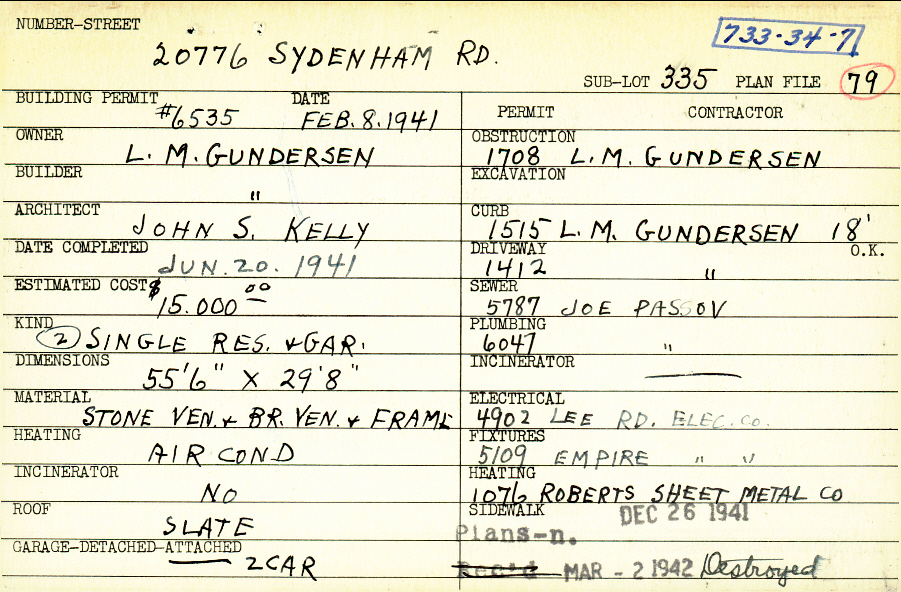 NUMBER-STREET
20776 SYDENHAM RD.
733-34-7
SUB-LOT 335 PLAN FILE 79
BUILDING PERMIT #6535 DATE FEB. 8. 1941
OWNER L. M. GUNDERSEN
BUILDER "
ARCHITECT JOHN S. KELLY
DATE COMPLETED JUN. 20. 1941
ESTIMATED COST $15.000 00
KIND (2) SINGLE RES. & GAR.
DIMENSIONS 55'6" X 29'8"
MATERIAL STONE VEN. & BR. VEN. & FRAME
HEATING AIR COND
INCINERATOR NO
ROOF SLATE
GARAGE-DETACHED-ATTACHED 2 CAR
PERMIT CONTRACTOR
OBSTRUCTION 1708 L. M. GUNDERSEN
EXCAVATION
CURB 1515 L. M. GUNDERSEN 18'
DRIVEWAY 1412 " O.K.
SEWER 5787 JOE PASSOV
PLUMBING 6047 "
INCINERATOR —
ELECTRICAL 4902 LEE RD. ELEC. CO.
FIXTURES 5109 EMPIRE " "
HEATING 1076 ROBERTS SHEET METAL CO
SIDEWALK DEC 26 1941
Plans-n.
Rec'd MAR - 2 1942 Destroyed